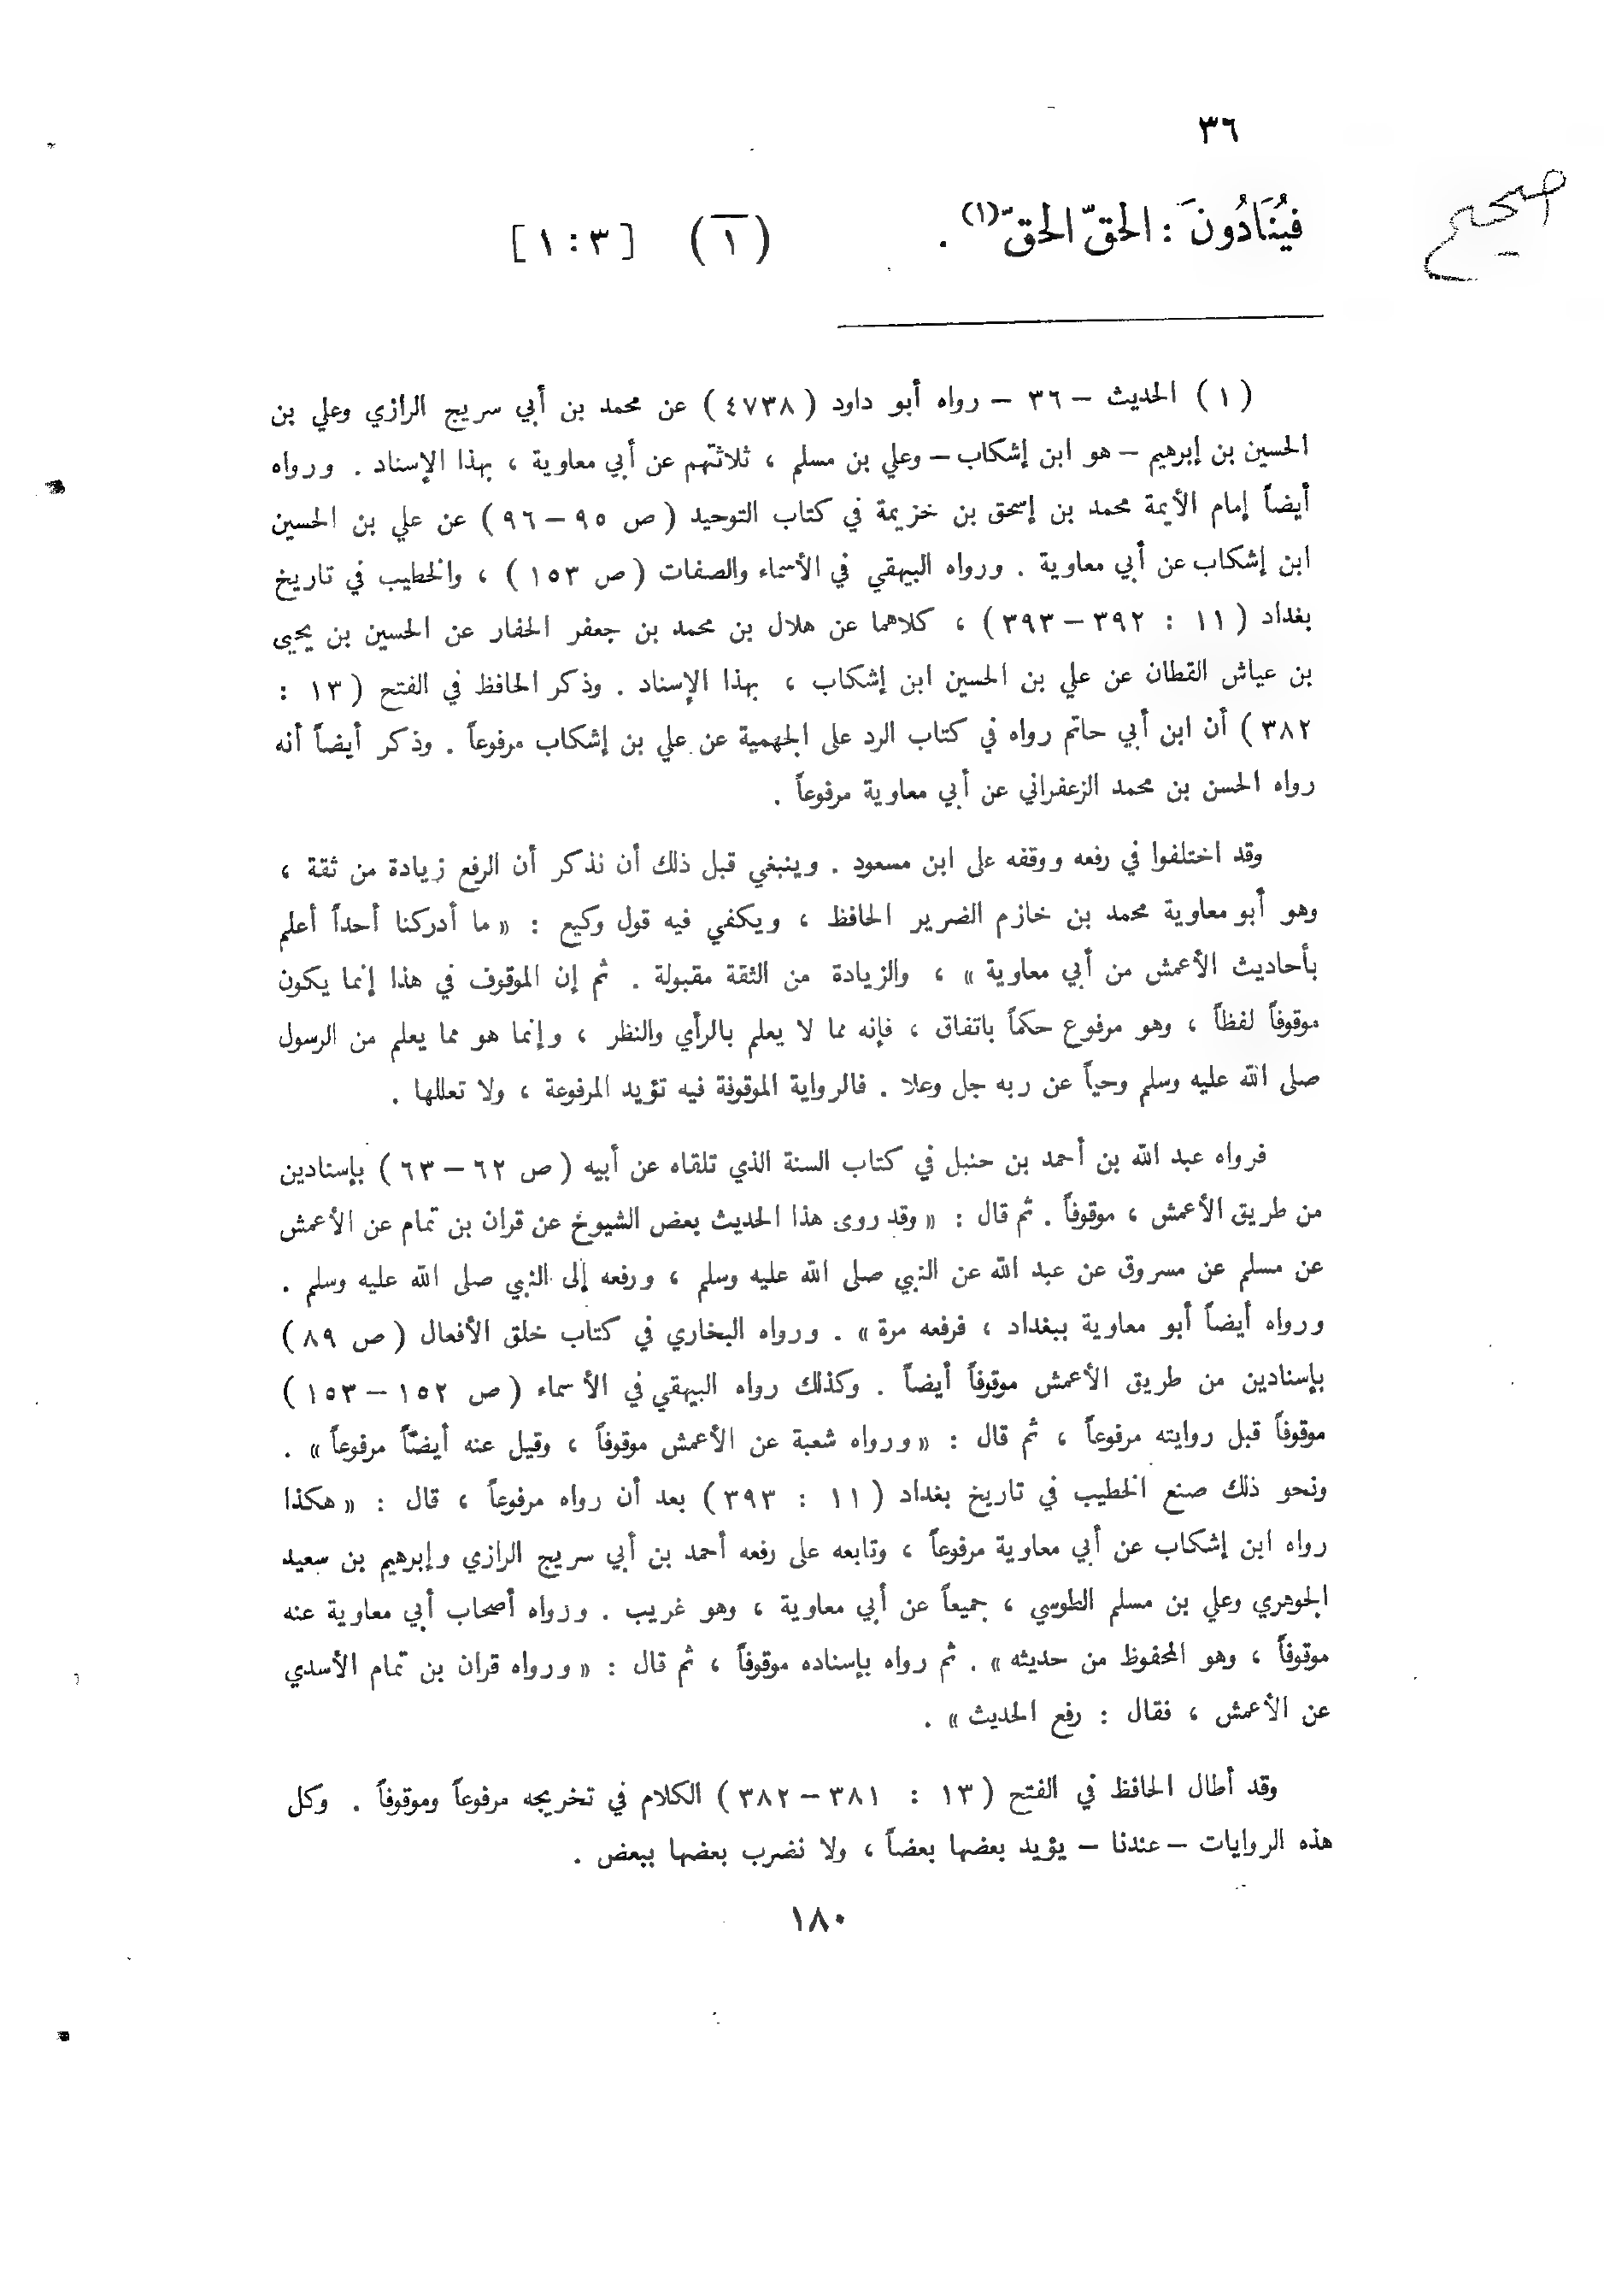 ٣٦
صحيح
فيُنَادُونَ : الحقّ الحقّ(١) . (١) [ ٣ : ١ ]
( ١ ) الحديث – ٣٦ – رواه أبو داود ( ٤٧٣٨ ) عن محمد بن أبي سريج الرازي وعلي بن
الحسين بن إبرهيم – هو ابن إشكاب – وعلي بن مسلم ، ثلاثتهم عن أبي معاوية ، بهذا الإسناد . ورواه
أيضاً إمام الأيمة محمد بن إسحق بن خزيمة في كتاب التوحيد ( ص ٩٥ – ٩٦ ) عن علي بن الحسين
ابن إشكاب عن أبي معاوية . ورواه البيهقي في الأسماء والصفات ( ص ١٥٣ ) ، والخطيب في تاريخ
بغداد ( ١١ : ٣٩٢ – ٣٩٣ ) ، كلاهما عن هلال بن محمد بن جعفر الحفار عن الحسين بن يحيى
بن عياش القطان عن علي بن الحسين ابن إشكاب ، بهذا الإسناد . وذكر الحافظ في الفتح ( ١٣ :
٣٨٢ ) أن ابن أبي حاتم رواه في كتاب الرد على الجهمية عن علي بن إشكاب مرفوعاً . وذكر أيضاً أنه
رواه الحسن بن محمد الزعفراني عن أبي معاوية مرفوعاً .
وقد اختلفوا في رفعه ووقفه على ابن مسعود . وينبغي قبل ذلك أن نذكر أن الرفع زيادة من ثقة ،
وهو أبو معاوية محمد بن خازم الضرير الحافظ ، ويكفي فيه قول وكيع : « ما أدركنا أحداً أعلم
بأحاديث الأعمش من أبي معاوية » ، والزيادة من الثقة مقبولة . ثم إن الموقوف في هذا إنما يكون
موقوفاً لفظاً ، وهو مرفوع حكماً باتفاق ، فإنه مما لا يعلم بالرأي والنظر ، وإنما هو مما يعلم من الرسول
صلى الله عليه وسلم وحياً عن ربه جل وعلا . فالرواية الموقوفة فيه تؤيد المرفوعة ، ولا تعللها .
فرواه عبد الله بن أحمد بن حنبل في كتاب السنة الذي تلقاه عن أبيه ( ص ٦٢ – ٦٣ ) بإسنادين
من طريق الأعمش ، موقوفاً . ثم قال : « وقد روى هذا الحديث بعض الشيوخ عن قران بن تمام عن الأعمش
عن مسلم عن مسروق عن عبد الله عن النبي صلى الله عليه وسلم ، ورفعه إلى النبي صلى الله عليه وسلم .
ورواه أيضاً أبو معاوية ببغداد ، فرفعه مرة » . ورواه البخاري في كتاب خلق الأفعال ( ص ٨٩ )
بإسنادين من طريق الأعمش موقوفاً أيضاً . وكذلك رواه البيهقي في الأسماء ( ص ١٥٢ – ١٥٣ )
موقوفاً قبل روايته مرفوعاً ، ثم قال : « ورواه شعبة عن الأعمش موقوفاً ، وقيل عنه أيضاً مرفوعاً » .
ونحو ذلك صنع الخطيب في تاريخ بغداد ( ١١ : ٣٩٣ ) بعد أن رواه مرفوعاً ، قال : « هكذا
رواه ابن إشكاب عن أبي معاوية مرفوعاً ، وتابعه على رفعه أحمد بن أبي سريج الرازي وإبرهيم بن سعيد
الجوهري وعلي بن مسلم الطوسي ، جميعاً عن أبي معاوية ، وهو غريب . ورواه أصحاب أبي معاوية عنه
موقوفاً ، وهو المحفوظ من حديثه » . ثم رواه بإسناده موقوفاً ، ثم قال : « ورواه قران بن تمام الأسدي
عن الأعمش ، فقال : رفع الحديث » .
وقد أطال الحافظ في الفتح ( ١٣ : ٣٨١ – ٣٨٢ ) الكلام في تخريجه مرفوعاً وموقوفاً . وكل
هذه الروايات – عندنا – يؤيد بعضها بعضاً ، ولا نضرب بعضها ببعض .
١٨٠